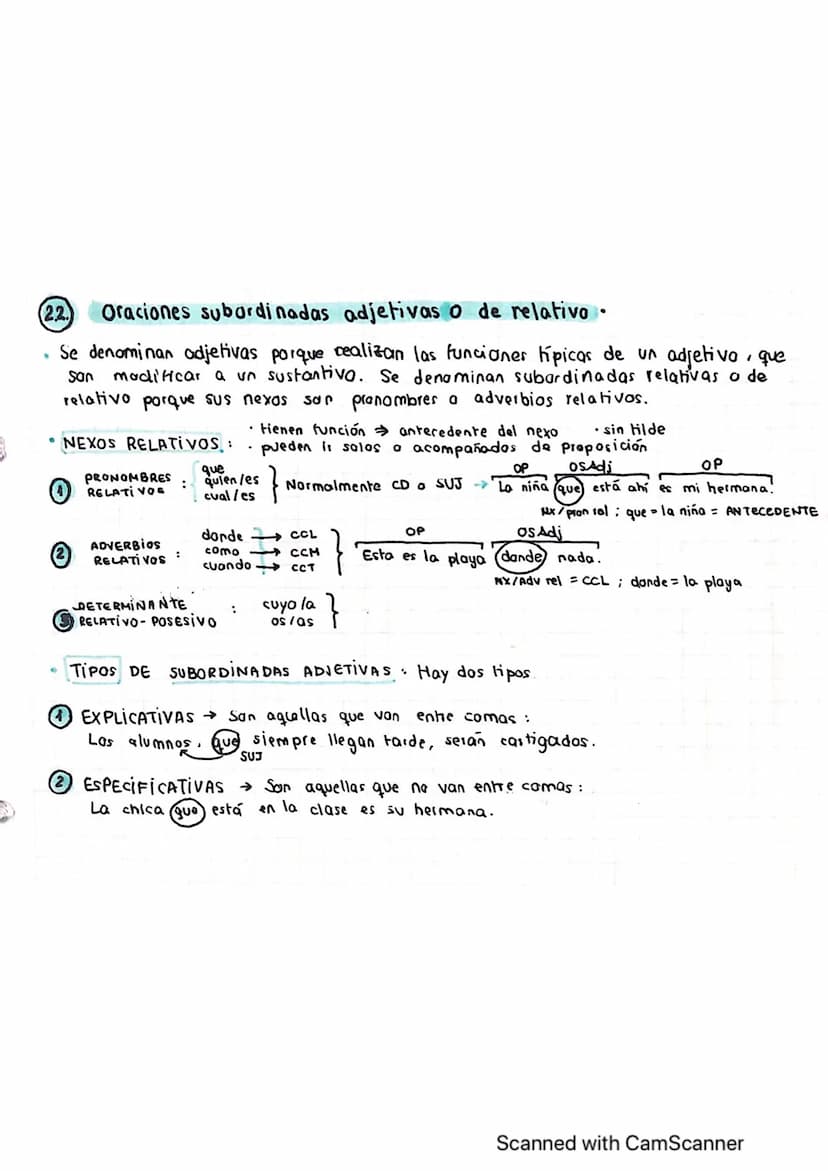 2.2. Oraciones subordinadas adjetivas o de relativo.
• Se denominan adjetivas porque realizan las funciones típicas de un adjetivo, que
son modificar a un sustantivo. Se denominan subordinadas relativas o de
relativo porque sus nexos son pronombres o adverbios relativos.
• tienen función → antecedente del nexo • sin tilde
• NEXOS RELATIVOS: • pueden ir solos o acompañados de preposición
OP OSAdj OP
① PRONOMBRES RELATIVOS : que quien/es cual/es } Normalmente CD o SUJ → La niña que está ahí es mi hermana.
NX/pron rel ; que = la niña = ANTECEDENTE
OP OSAdj
② ADVERBIOS RELATIVOS : donde → CCL como → CCM cuando → CCT } Esta es la playa donde nado.
NX/Adv rel = CCL ; donde = la playa
③ DETERMINANTE RELATIVO-POSESIVO : cuyo/a os/as }
• TIPOS DE SUBORDINADAS ADJETIVAS. Hay dos tipos.
① EXPLICATIVAS → Son aquellas que van entre comas:
Los alumnos, que siempre llegan tarde, serán castigados.
SUJ
② ESPECIFICATIVAS → Son aquellas que no van entre comas:
La chica que está en la clase es su hermana.
Scanned with CamScanner